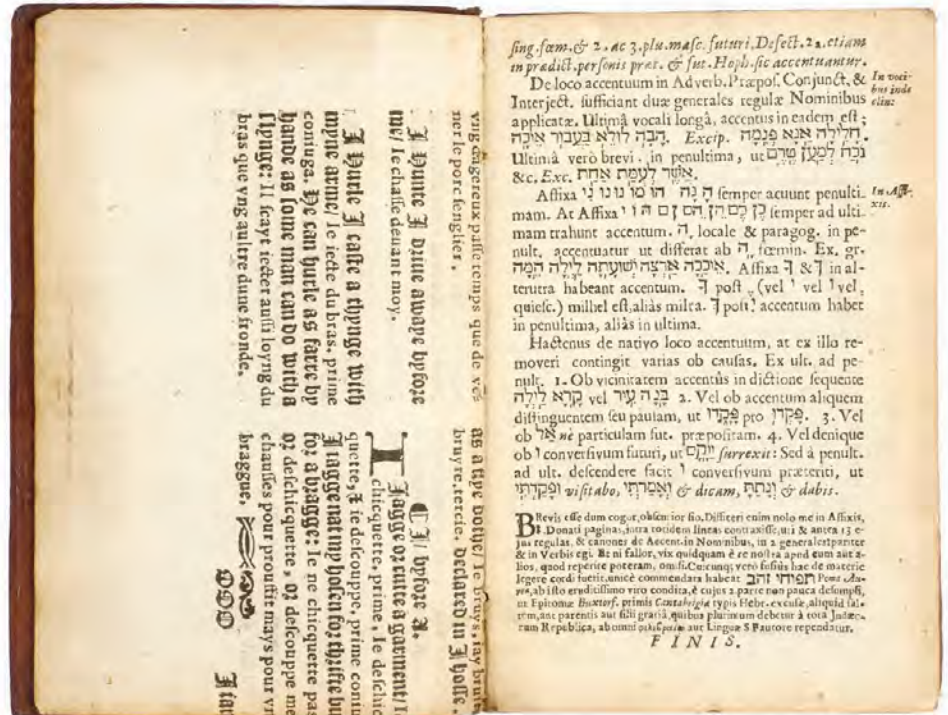 vng dangereux passe temps que de
ner le porc senglier.
I Hunte I driue awaye byfore
me/ Ie chasse deuant moy.
I Hurle I caste a thynge with
myne arme/ Ie iecte du bras. prime
coniuga. He can hurle as farre by
hande as some man can do with a
slynge: Il scayt iecter aussi loyng du
bras que vng aultre dune fronde.
as a dothe/ Ie bruys, iay bruit
bruyre. tercie. declared in I hosse.
¶ I/ byfore A.
I Iagge or cutte a garment/ I
chicquette, prime. Ie deschic
quette, & ie descouppe, prime coniu
I iagge nat my hosen for thrifte bu
for a bragge: Ie ne chicquette pas
or deschicquette, or descouppe me
chausses pour prouffit mays pour vn
braggue.
I iar
sing. fœm. & 2. ac 3. plu. masc. futuri. Defect. 22. etiam
in prædict. personis præt. & fut. Hoph. sic accentuantur.
De loco accentuum in Adverb. Præpos. Conjunct. &
Interject. sufficiant duæ generales regulæ Nominibus
applicatæ. Ultimâ vocali longâ, accentus in eadem est;
חלילה אנא פנמה Excip. הבה לולא בעבור איכה
Ultimâ verò brevi, in penultima, ut נכח למען טרם
&c. Exc. אשר לעמת אחת.
In voci-
bus inde
clin:
Affixa ה נה הו מו נו ני semper acuunt penulti-
mam. At Affixa י ו הם הן כם כן semper ad ulti-
mam trahunt accentum. ה, locale & paragog. in pe-
nult. accentuatur ut differat ab ה, fœmin. Ex. gr.
אוככה ארצה ישועתה לילה המה. Affixa ך & ך in al-
terutra habeant accentum. ך post (vel י vel ו vel,
quiesc.) milhel est, aliàs milra. ך post accentum habet
in penultima, aliàs in ultima.
In Affi-
xis.
Hactenus de nativo loco accentuum, at ex illo re-
moveri contingit varias ob causas. Ex ult. ad pe-
nult. 1. Ob vicinitatem accentûs in dictione sequente
קרא לילה vel בנה עיר 2. Vel ob accentum aliquem
distinguentem seu pausam, ut פקדו pro פקדו. 3. Vel
ob אל nè particulam fut. præpositam. 4. Vel denique
ob ו conversivum futuri, ut ויקם surrexit: Sed à penult.
ad ult. descendere facit ו conversivum præteriti, ut
ופקדתי visitabo, ואמרתי & dicam, ונתת & dabis.
BRevis esse dum cogor, obscurior fio. Diffiteri enim nolo me in Affixis,
Bt. Donati paginas, intra totidem lineas contraxisse, uti & antea 13 e-
jus regulas, & canones de Accent. in Nominibus, in 2 generales: pariter
& in Verbis egi. Et ni fallor, vix quidquam è re nostra apud eum aut a-
lios, quod reperite poteram, omisi. Cuicunq; verò fusius hac de materie
legere cordi fuerit, unicè commendata habeat תפוחי זהב Poma Au-
rea, ab isto eruditissimo viro condita, è cujus 2. parte non pauca desumpsi,
ut Epitomæ Buxtorf. primis Cantabrigiæ typis Hebr. excusæ, aliquid sal-
tem, aut parentis aut filii gratiâ, quibus plurimum debetur à tota Judæo-
rum Republica, ab omni aut Linguæ S. Fautore rependatur.
FINIS.